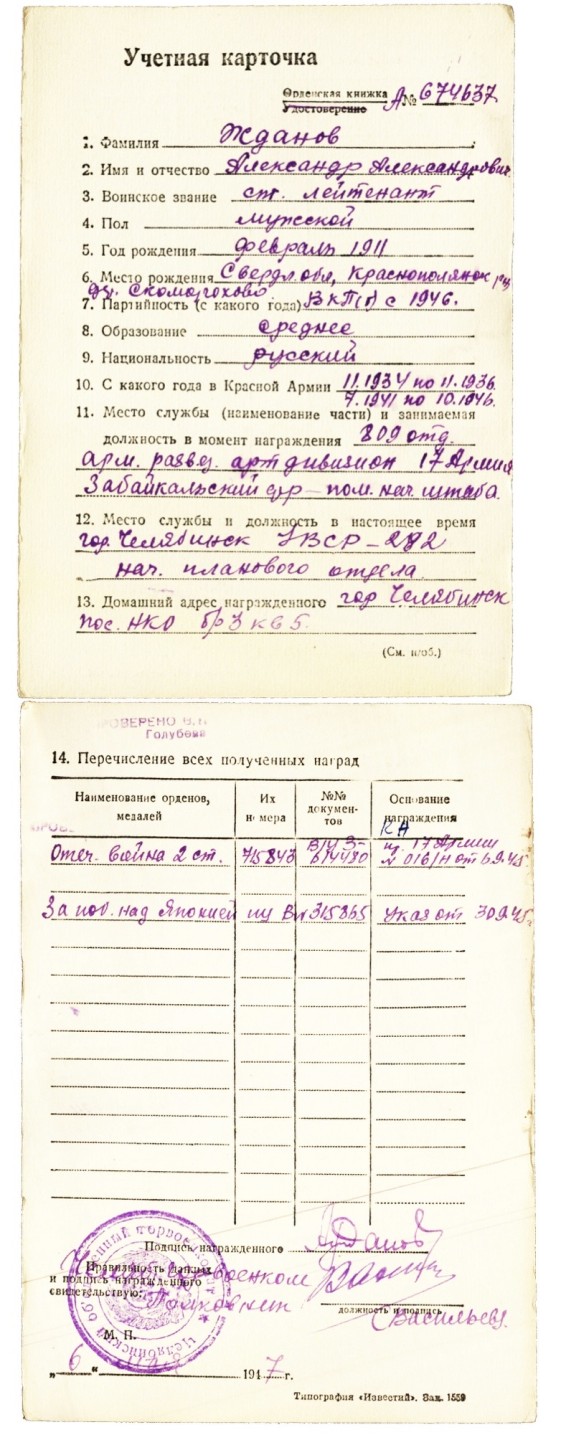 Учетная карточка
Орденская книжка
Удостоверение А№ 674637
1. Фамилия Жданов
2. Имя и отчество Александр Александрович
3. Воинское звание ст. лейтенант
4. Пол мужской
5. Год рождения февраль 1911
6. Место рождения Свердл. обл, Краснополянск
7. Партийность (с какого года) ВКП(б) с 1946.
8. Образование среднее
9. Национальность русский
10. С какого года в Красной Армии 11.1934 по 11.1936
7.1941 по 10.1946.
11. Место службы (наименование части) и занимаемая
должность в момент награждения 809 отд.
арм. развед. арт дивизион 17 Армия
Забайкальский фр – пом. нач. штаба.
12. Место службы и должность в настоящее время
гор. Челябинск УВСР – 282
нач. планового отдела
13. Домашний адрес награжденного гор Челябинск
пос. НКО бр 3 кв 5.
(См. н/об.)
ПРОВЕРЕНО
14. Перечисление всех полученных наград
Наименование орденов, медалей Их номера №№ документов Основание награждения
КА
Отеч. война 2 ст. 715843 614480 пр. 17 Армии № 016/н от 6.9.45
За поб. над Японией 315865 Указ от 30.9.45г.
Подпись награжденного Жданов
Правильность данных
и подпись награжденного
свидетельствую: военком
Полковник
должность и подпись
(Васильев)
М. П.
„6" 1947 г.
Типография «Известий». Зак. 1559